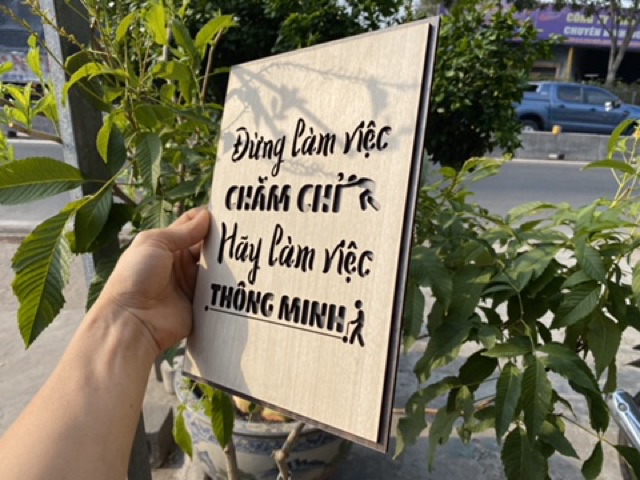 Đừng làm việc
CHĂM CHỈ
Hãy làm việc
THÔNG MINH
CÔNG TY
CHUYÊN